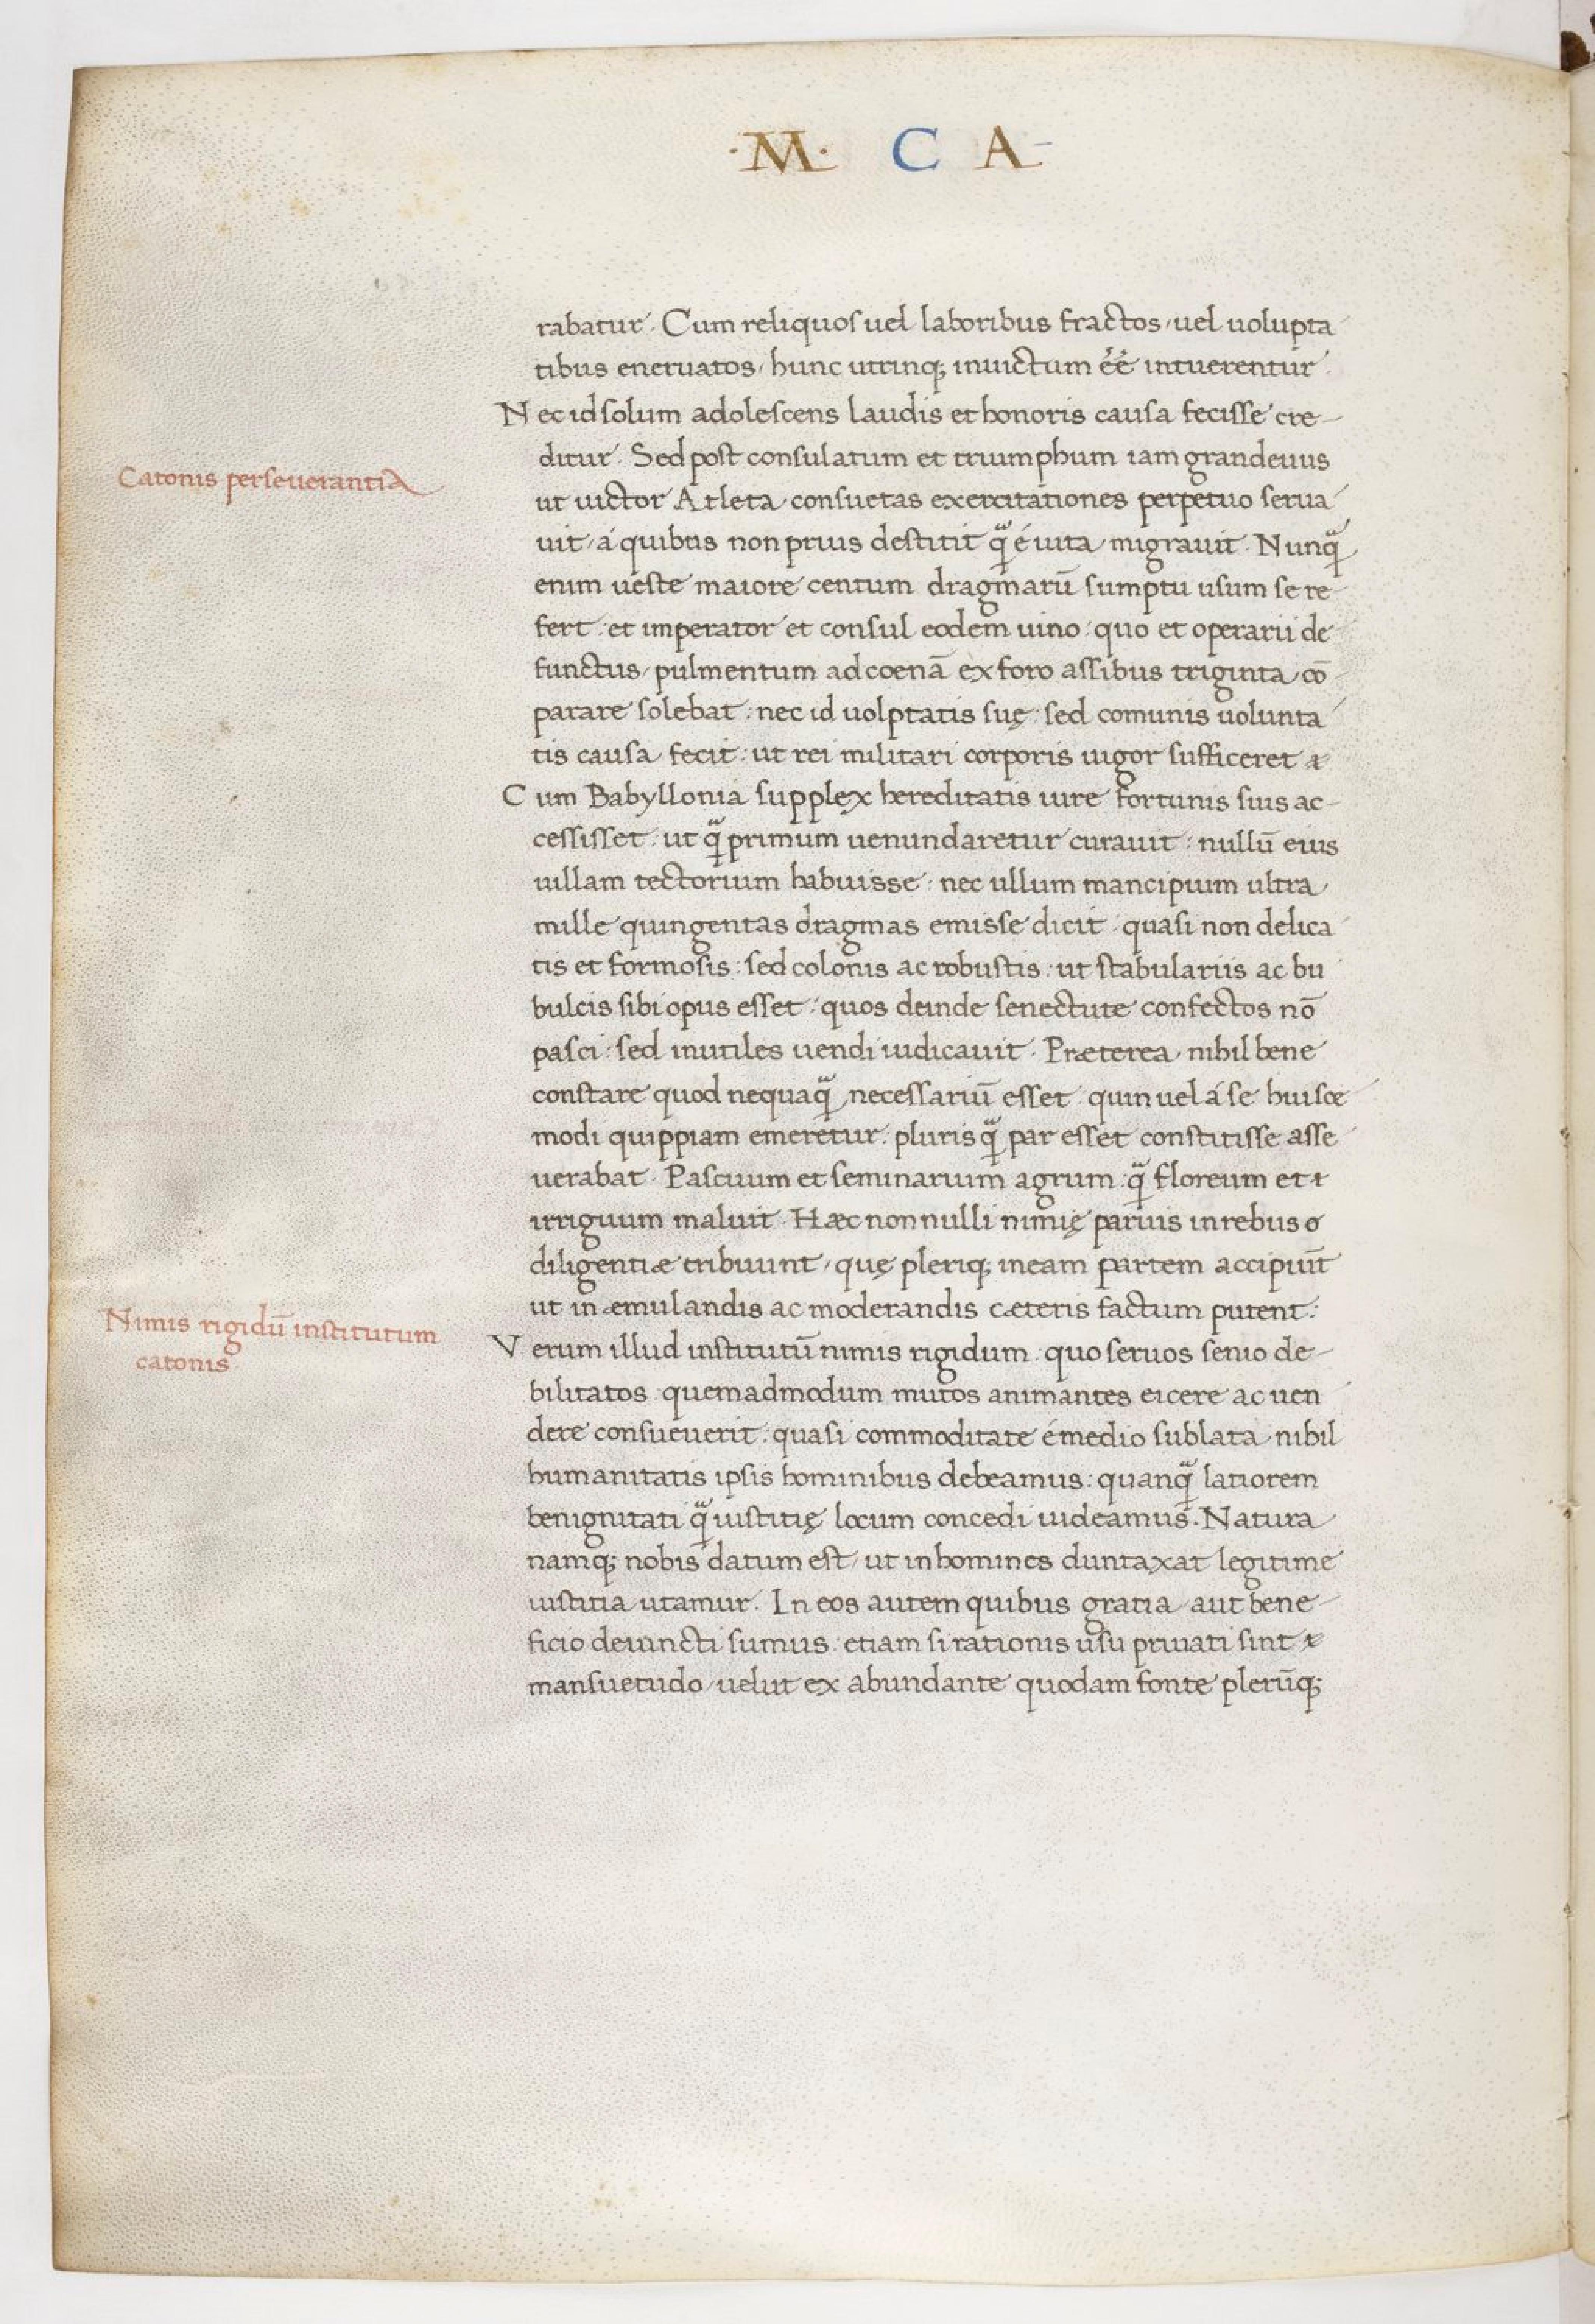 ·M· C A
rabatur. Cum reliquos uel laboribus fractos, uel uolupta
tibus eneruatos, hunc utrinq; inuictum ēē intuerentur.
Nec id solum adolescens laudis et honoris causa fecisse cre-
ditur. Sed post consulatum et triumphum iam grandeuus
Catonis perseuerantia
ut uictor Atleta consuetas exercitationes perpetuo serua
uit, á quibus non prius destitit qᷓ é uita migrauit. Nunqᷓ
enim ueste maiore centum dragmarū sumptu usum se re
fert: et imperator et consul eodem uino: quo et operarii de
functus, pulmentum ad coenā ex foro assibus triginta cō
parare solebat: nec id uolptatis suę: sed comunis uolunta
tis causa fecit: ut rei militari corporis uigor sufficeret
Cum Babyllonia supplex hereditatis iure fortunis suis ac-
cessisset: ut qᷓ primum uenundaretur curauit: nullū eius
uillam tectorium habuisse: nec ullum mancipium ultra
mille quingentas dragmas emisse dicit: quasi non delica
tis et formosis: sed colonis ac robustis: ut stabulariis ac bu
bulcis sibi opus esset: quos deinde senectute confectos nō
pasci: sed inutiles uendi iudicauit. Præterea nihil bene
constare quod nequaqᷓ necessariū esset: quin uel á se huisce
modi quippiam emeretur: pluris qᷓ par esset constitisse asse
uerabat. Pascuum et seminarium agrum: qᷓ floreum et i
irriguum maluit. Hæc nonnulli nimię paruis in rebus
diligentiæ tribuunt, quę pleriq; in eam partem accipiūt
ut in æmulandis ac moderandis cæteris factum putent:
Nimis rigidū institutum
catonis
Verum illud institutū nimis rigidum: quo seruos senio de-
bilitatos: quemadmodum mutos animantes eicere ac uen
dere consueuerit: quasi commoditate é medio sublata nihil
humanitatis ipsis hominibus debeamus: quanqᷓ latiorem
benignitati qᷓ iustitię locum concedi uideamus. Natura
namq; nobis datum est, ut in homines duntaxat legitime
iustitia utamur. In eos autem quibus gratia aut bene-
ficio deuincti sumus: etiam si rationis usu priuati sint
mansuetudo, uelut ex abundante quodam fonte plerūq;